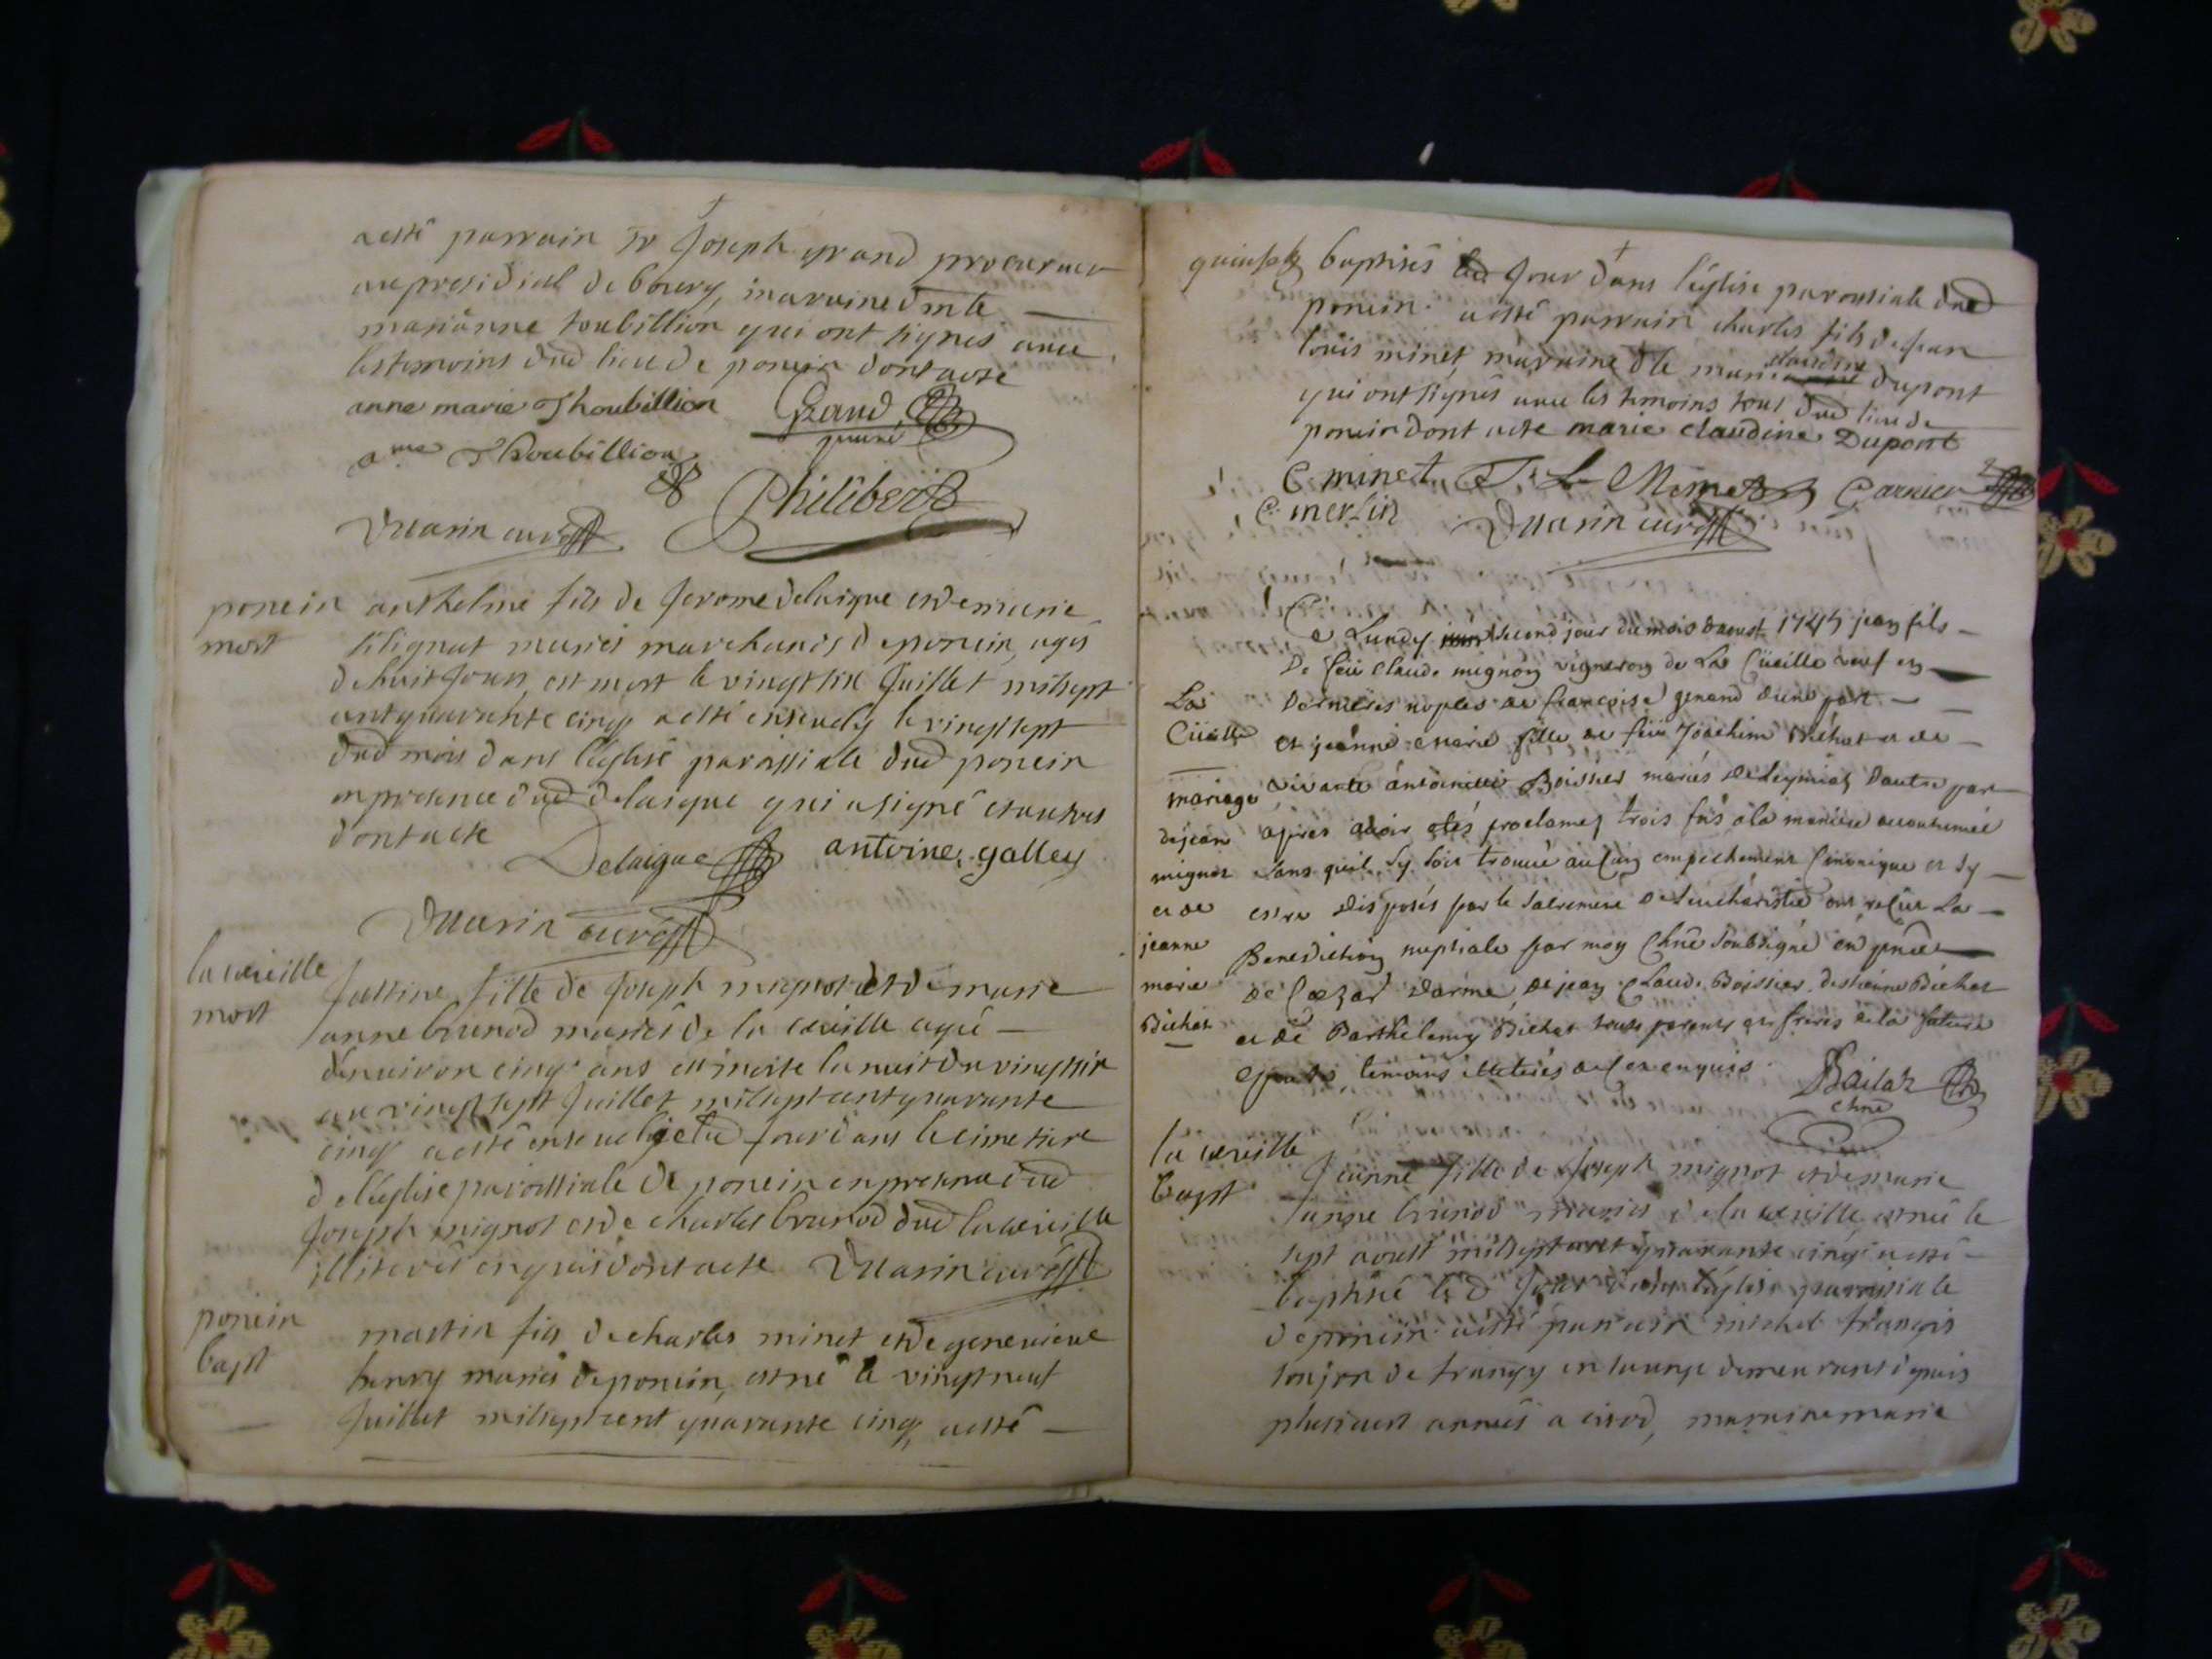 a esté parrain Sr Joseph grand procureur
au presidial de bourg, maraine dmlle
marianne toubillion qui ont signes avec
les temoins dud lieu de poncin dont acte
anne marie Thoubillion Grand
a Thoubillion Philibert
Marin curé
poncin
mort
anthelme fils de Jerome delaigue et de marie
maries marchands de poncin, agé
de huit Jours, est mort le vingt six Juillet mil sept
cent quarante cinq a esté ensevely le vingt sept
dud mois dans l'église paroissiale dud poncin
en presence dud delaigue qui a signé et autres
dont acte
Delaigue antoine galley
Marin curé
la cueille
mort
Justine fille de Joseph mignot et de marie
anne brunod mariés de la cueille agée
denviron cinq ans est morte la nuit du vingt six
au vingt sept Juillet mil sept cent quarante
cinq a esté ensevelie led Jour dans le cimetiere
de l'église paroissiale de poncin en presence dud
Joseph mignot et de charles brunod dud la cueille
illiterés enquis dont acte Marin curé
poncin
bapt
martin fils de charles minet et de genevieve
henry mariés de poncin, est né le vingt neuf
Juillet mil sept cent quarante cinq, a esté
baptisés led Jour dans l'église paroissiale dud
poncin. a esté parrain charles fils de Jean
louis minet, maraine dlle marie claudine dupont
qui ont signés avec les temoins tous dud lieu de
poncin dont acte marie claudine Dupont
C minet J. L Minet Garnier
C. merlin Marin curé
Ce Lundy second jour du mois daoust 1745 jean fils
De feü claude mignon vigneron de La Cüeille veuf en
La
Cüeille
Dernieres nopces de françoise genand dune part
et jeanne marie fille de feü Joachim Bichat et de
mariage
de jean
mignot
et de
jeanne
marie
Bichat
vivante antoinette Boissier mariés de Leymiat Dautre part
apres avoir estés proclamés trois fois a la maniere accoutumée
sans quil sy soit trouvé aucun empechement Canonique et sy
estre disposés par le Sacrement de Leucharistie ont reçüe La
Benediction nuptiale par moy Chne soubsigné en pnce
de Cæzar darme, de jean Claude Boissier, destienne Bichat
et de Barthelemy Bichat touts parents et freres de la future
Epouse, temoins illiterés de ce enquis. Bailat
chne
la cueille
bapt
Jeanne fille de Joseph mignot et de marie
anne brunod mariés de la cueille est née le
sept aoust mil sept cent quarante cinq a esté
baptisé led Jour dans l'église paroissiale
de poncin. a esté parrain michel françois
de demeurant depuis
plusieurs années a cerod, maraine marie